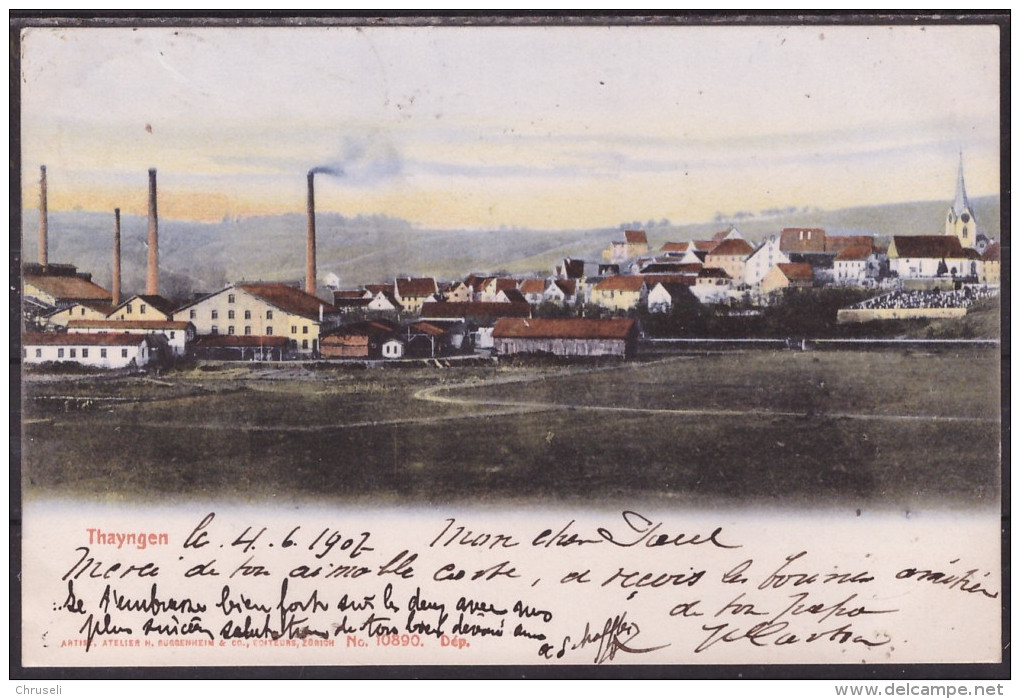 Thayngen le 4.6.1902 Mon cher Paul
Merci de ton aimable carte, et reçois les bonnes amitiés
de ton Papa
Je t'embrasse bien fort sur les deux avec nos
plus sincères salutations de ton bien dévoué ami
ARTIST. ATELIER H. GUGGENHEIM & CO., EDITEURS, ZÜRICH No. 10890. Dép.
Chruseli
delcampe.net